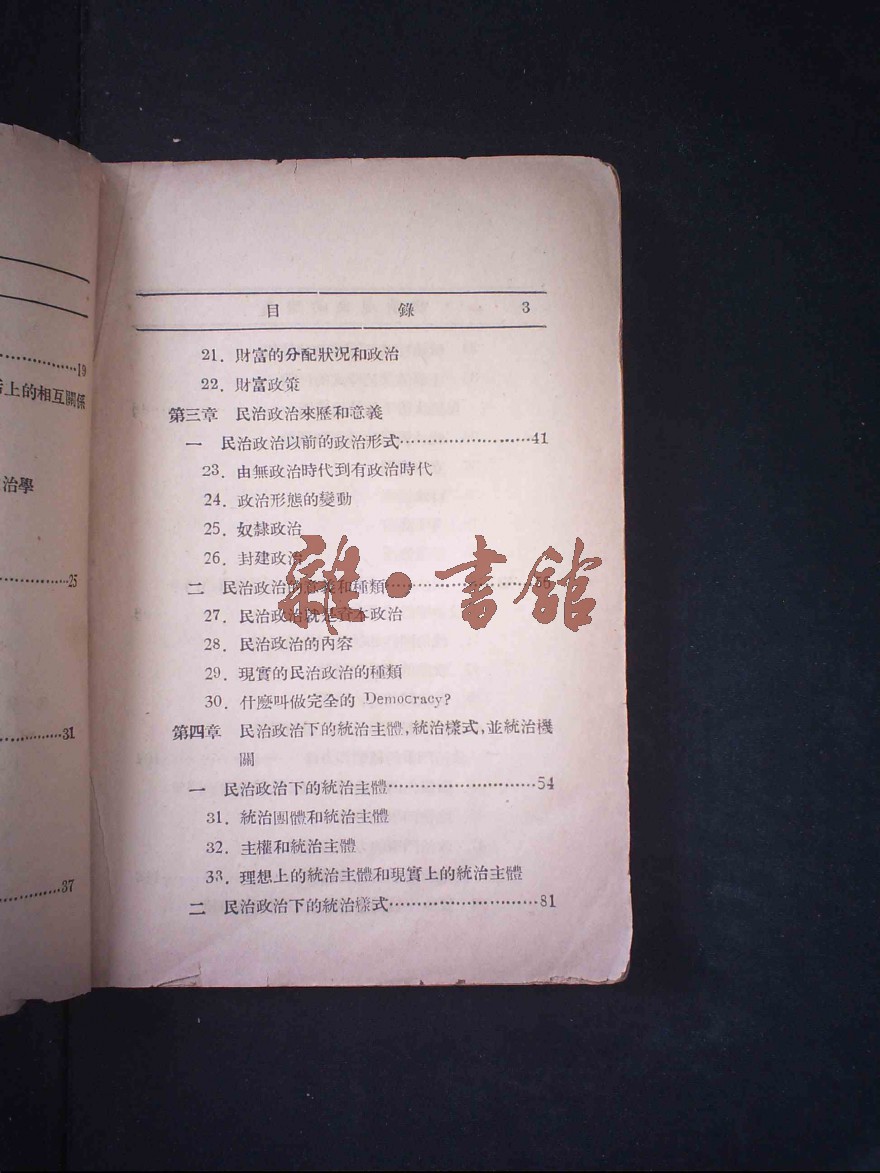 19
上的相互關係
治學
25
31
37
目錄 3
21. 財富的分配狀况和政治
22. 財富政策
第三章 民治政治來歷和意義
一 民治政治以前的政治形式……………………41
23. 由無政治時代到有政治時代
24. 政治形態的變動
25. 奴隸政治
26. 封建政治
二 民治政治的意義和種類……………………
27. 民治政治就是資本政治
28. 民治政治的內容
29. 現實的民治政治的種類
30. 什麼叫做完全的 Democracy?
第四章 民治政治下的統治主體,統治樣式,並統治機
關
一 民治政治下的統治主體……………………54
31. 統治團體和統治主體
32. 主權和統治主體
33. 理想上的統治主體和現實上的統治主體
二 民治政治下的統治樣式……………………81
雜·書館